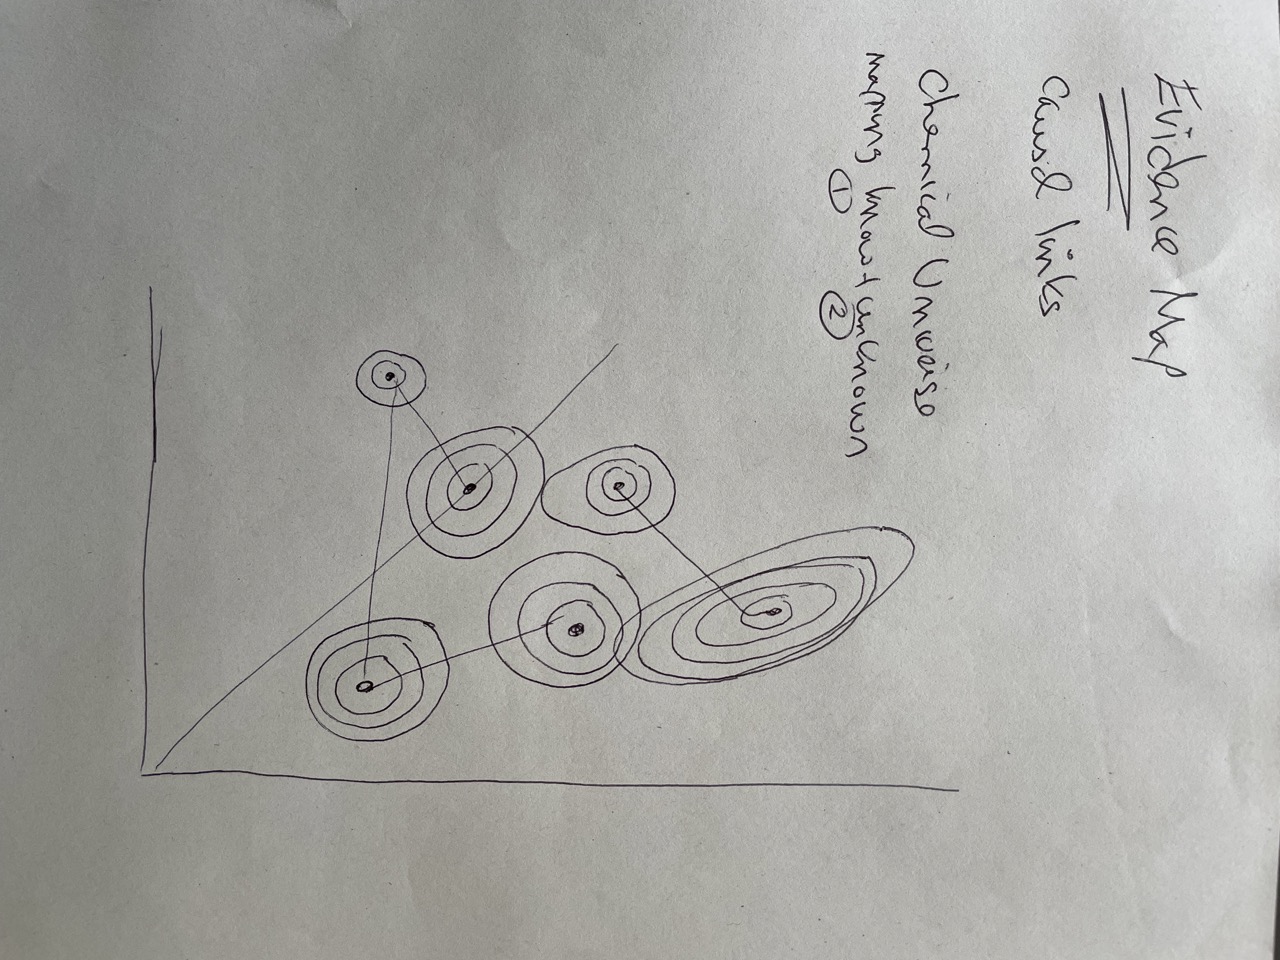 Evidence Map
Causal links
Chemical Universe
mapping know + unknown
① ②